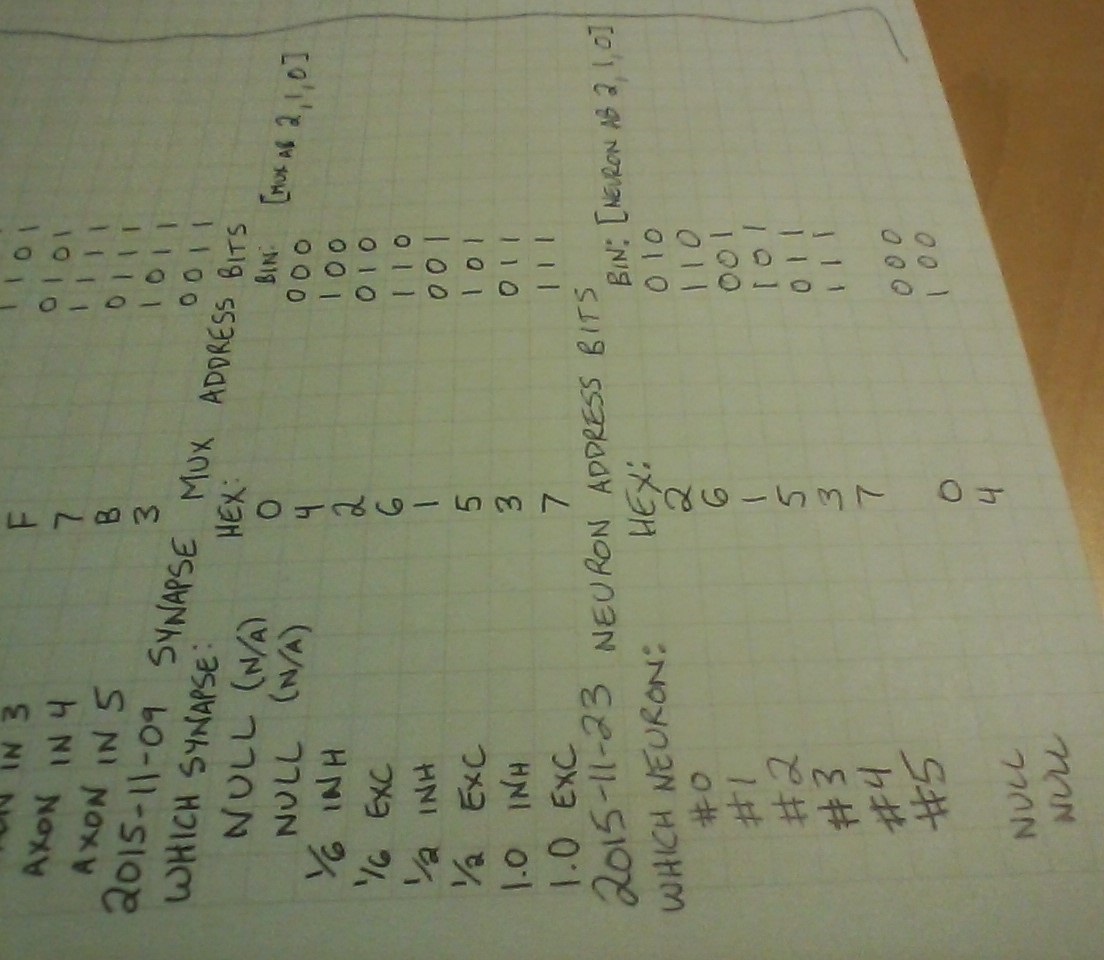 1 1 0 1
0 1 0 1
F 1 1 1 1
IN 3 7 0 1 1 1
AXON IN 4 B 1 0 1 1
AXON IN 5 3 0 0 1 1
2015-11-09 SYNAPSE MUX ADDRESS BITS
WHICH SYNAPSE: HEX: BIN: [MUX AB 2,1,0]
NULL (N/A) 0 0 0 0
NULL (N/A) 4 1 0 0
1/6 INH 2 0 1 0
1/6 EXC 6 1 1 0
1/2 INH 1 0 0 1
1/2 EXC 5 1 0 1
1.0 INH 3 0 1 1
1.0 EXC 7 1 1 1
2015-11-23 NEURON ADDRESS BITS
WHICH NEURON: HEX: BIN: [NEURON AB 2,1,0]
#0 2 0 1 0
#1 6 1 1 0
#2 1 0 0 1
#3 5 1 0 1
#4 3 0 1 1
#5 7 1 1 1
NULL 0 0 0 0
NULL 4 1 0 0